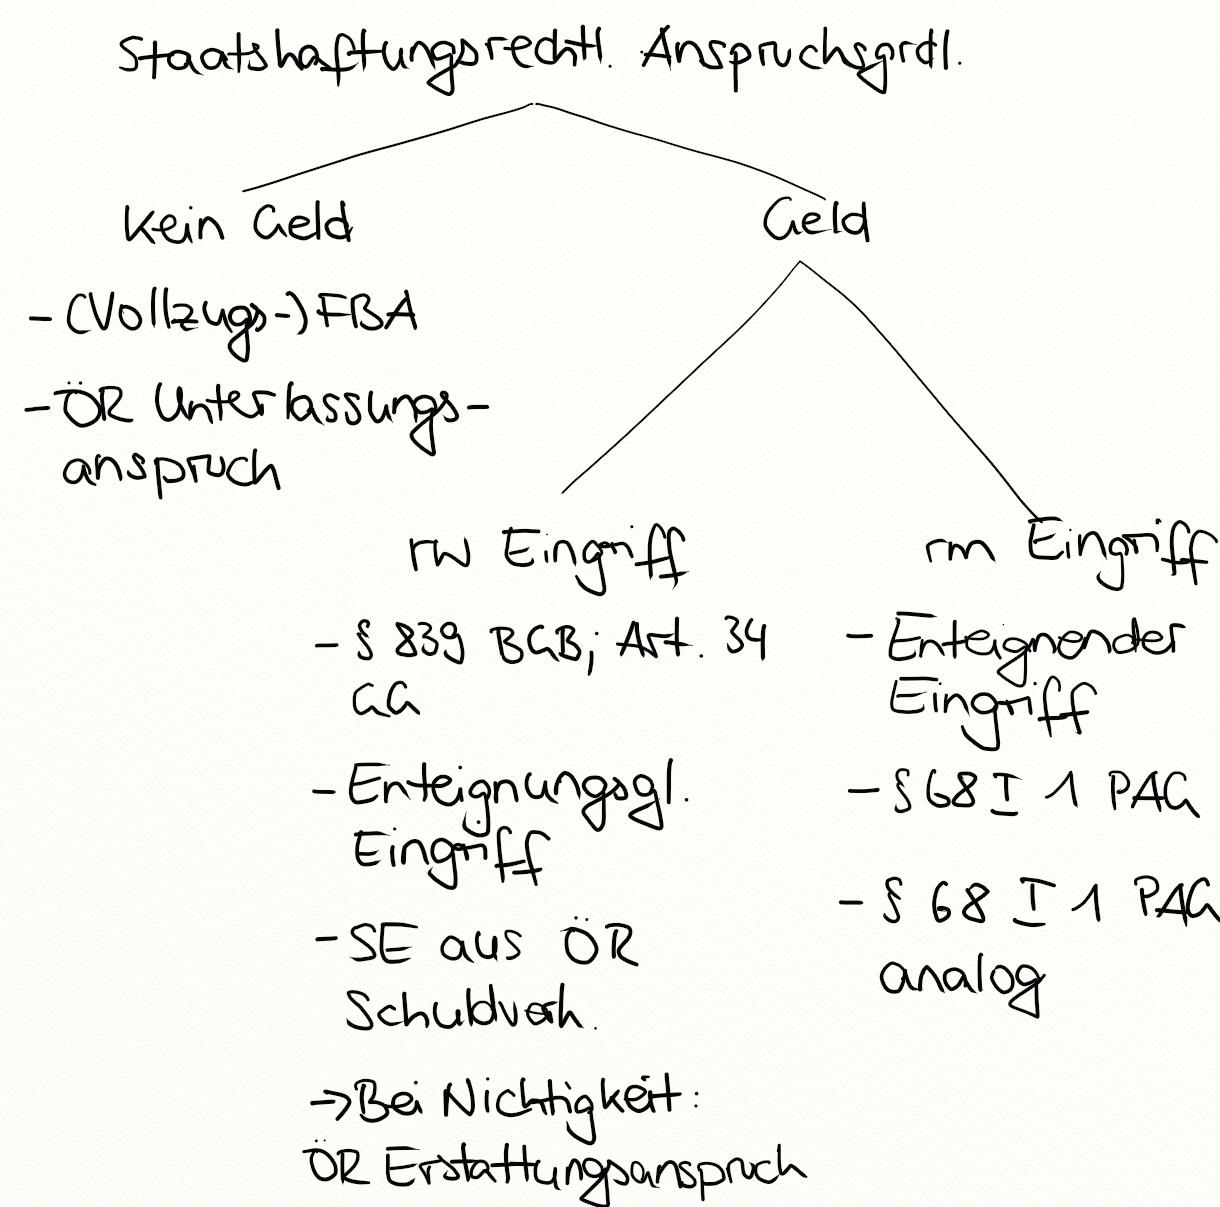 Staatshaftungsrechtl. Anspruchsgrdl.
Kein Geld
- (Vollzugs-) FBA
- ÖR Unterlassungs-
anspruch
Geld
rw Eingriff
- § 839 BGB; Art. 34
GG
- Enteignungsgl.
Eingriff
- SE aus ÖR
Schuldverh.
→ Bei Nichtigkeit:
ÖR Erstattungsanspruch
rm Eingriff
- Enteignender
Eingriff
- § 68 I 1 PAG
- § 68 I 1 PAG
analog